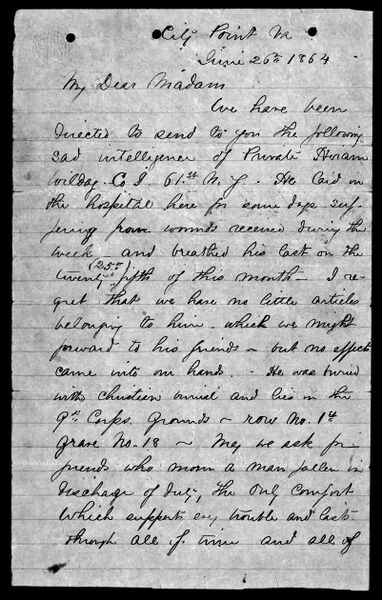 City Point Va
June 26th 1864
My Dear Madam
We have been
directed to send to you the following
sad intelligence of Private Hiram
Wilday. Co I. 61.st N. Y. He laid in
the hospital here for some days suf-
fering from wounds received during the
week and breathed his last on the
(25th)
twenty fifth of this month - I re-
gret that we have no little articles
belonging to him. which we might
forward to his friends - but no effects
came into our hands. - He was buried
with christian burial and lies in the
9th Corps. Grounds - row No. 14
grave No. 18 - May we ask for
friends who mourn a man fallen in
discharge of duty, the only comfort
which supports every trouble and lasts
through all of time and all of